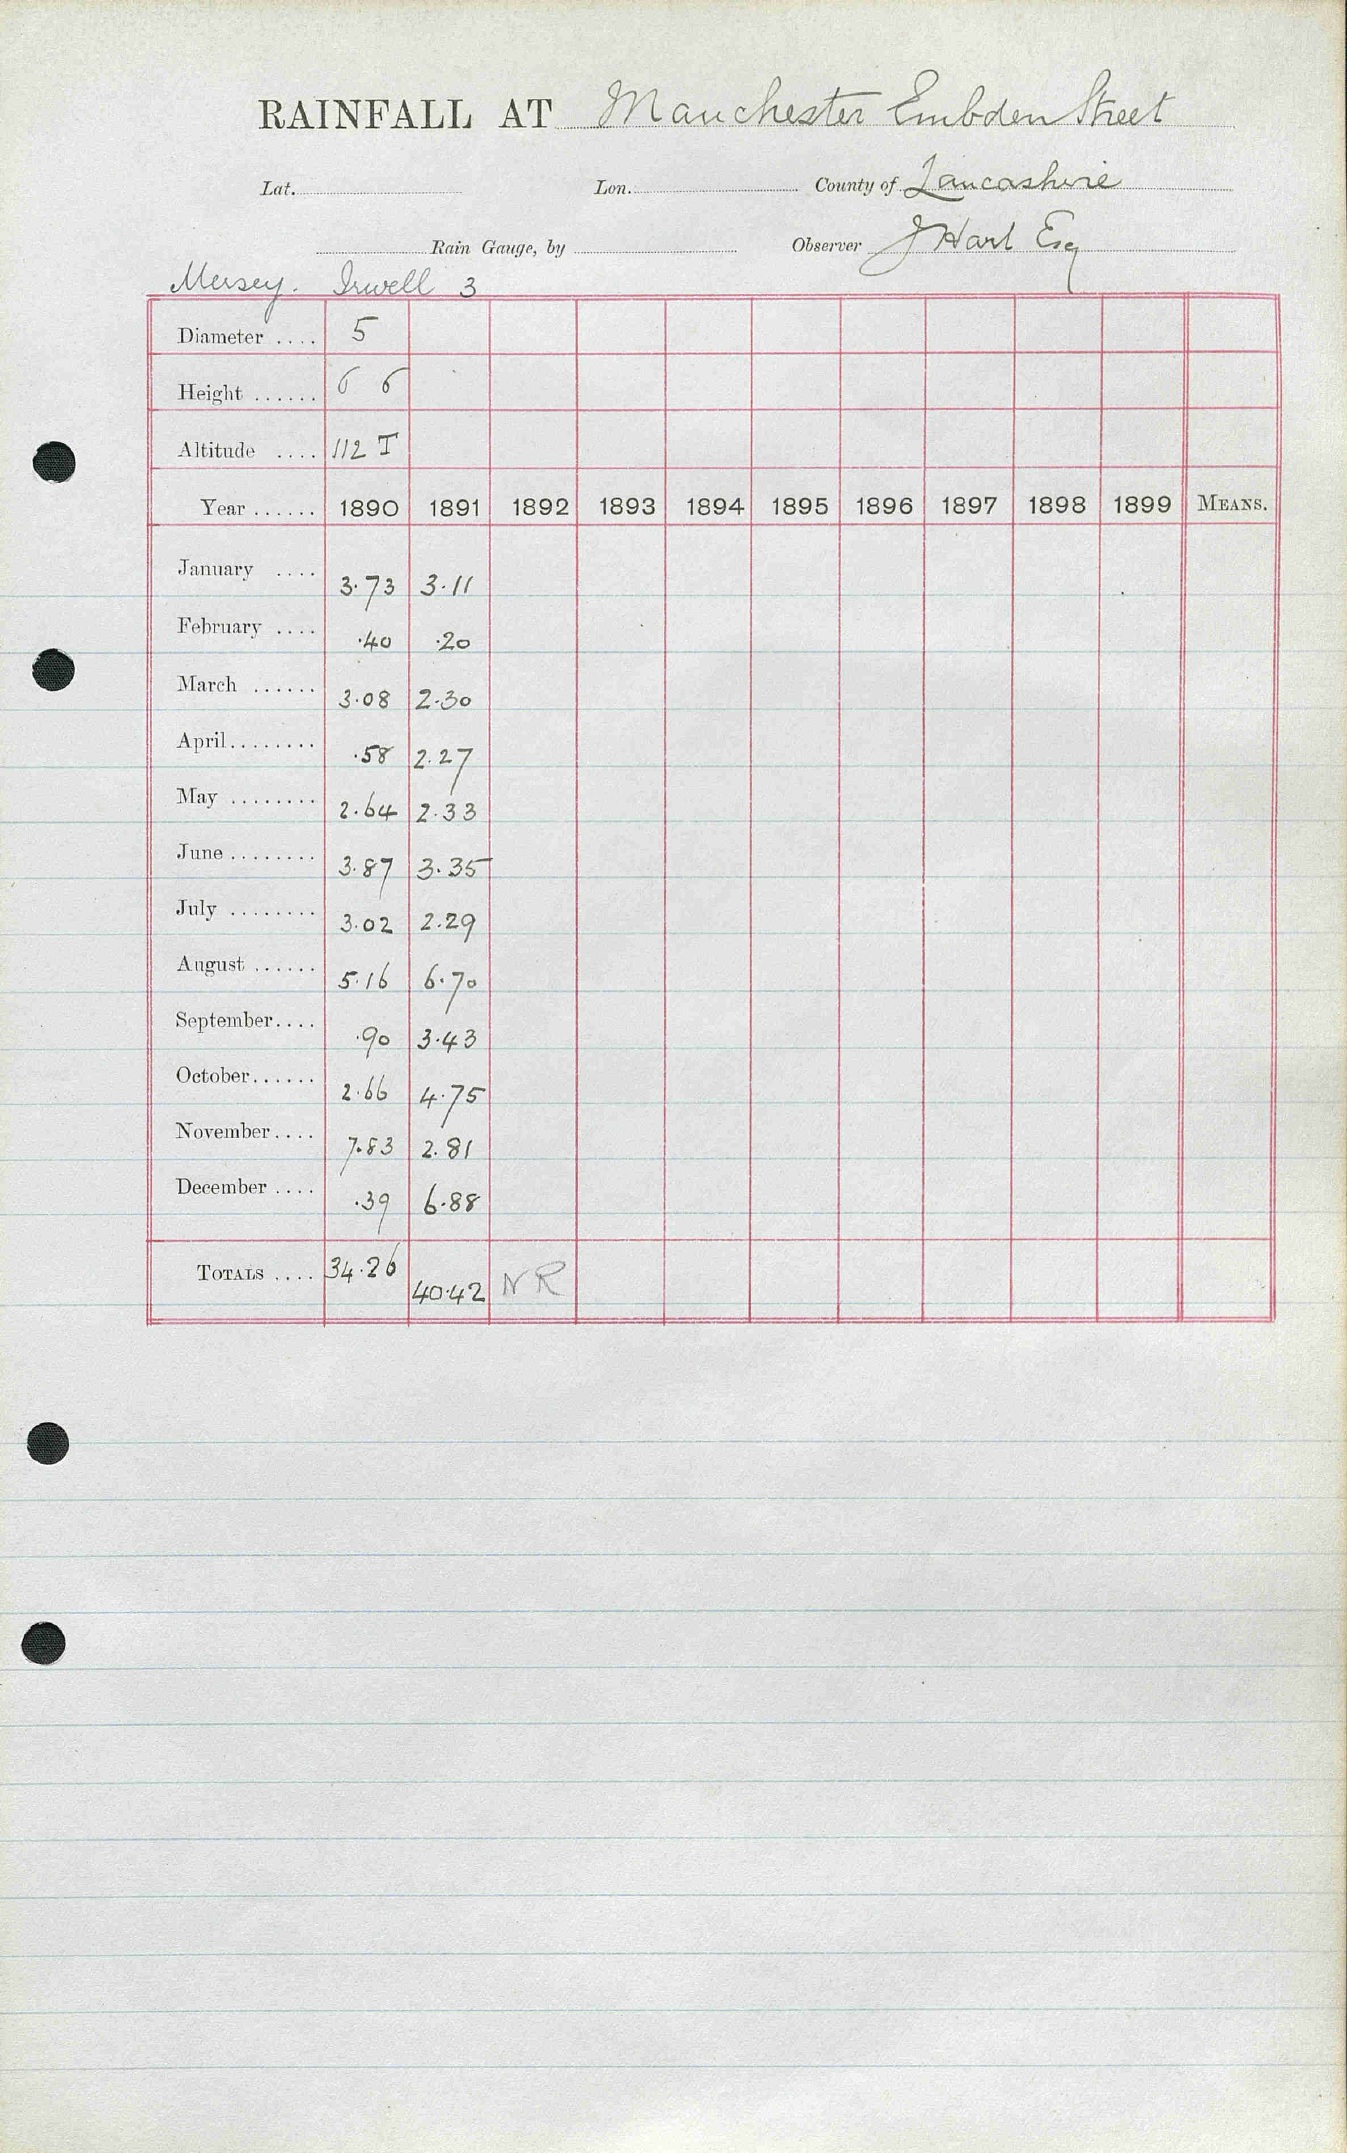 RAINFALL AT Manchester Embden Street
Lat. Lon. County of Lancashire
Rain Gauge, by Observer J Hart Esq
Mersey. Irwell 3
Diameter .... 5
Height ...... 6 6
Altitude .... 112 T
Year ...... 1890 1891 1892 1893 1894 1895 1896 1897 1898 1899 MEANS.
January .... 3.73 3.11
February .... .40 .20
March ...... 3.08 2.30
April........ .58 2.27
May ........ 2.64 2.33
June ........ 3.87 3.35
July ........ 3.02 2.29
August ...... 5.16 6.70
September.... .90 3.43
October...... 2.66 4.75
November.... 7.83 2.81
December .... .39 6.88
TOTALS .... 34.26 40.42 NR